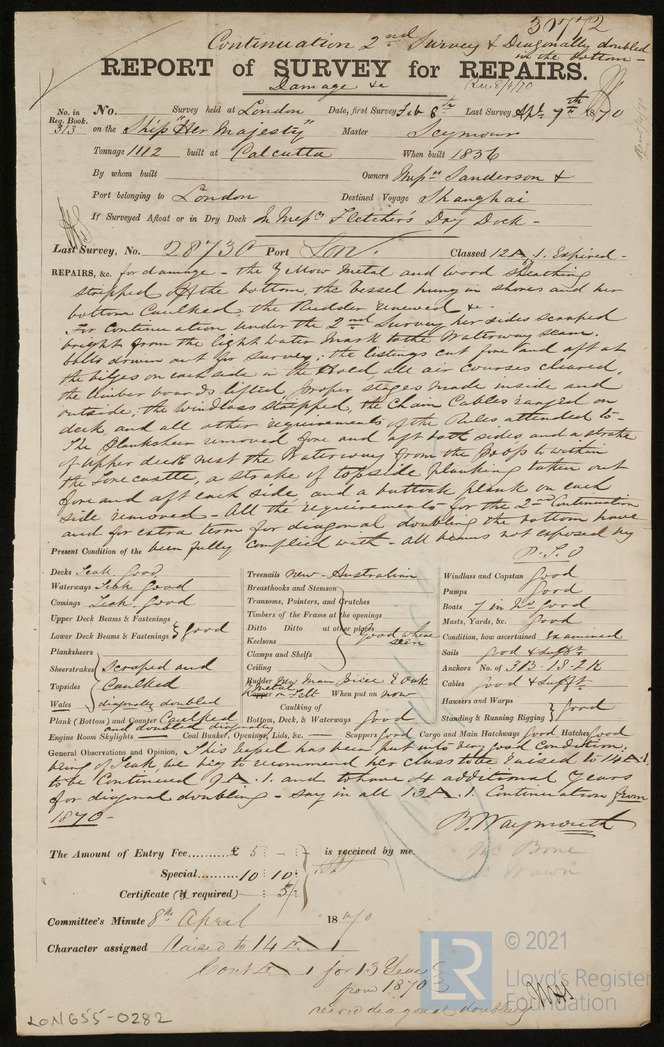 30772
Continuation 2nd Survey & Diagonally doubled
in the bottom -
REPORT of SURVEY for REPAIRS.
Damage &c
Rec 8/4/70
No. in Reg. Book. 313
No. Survey held at London Date, first Survey Feb 8th Last Survey Apl. 7th 1870
on the Ship "Her Majesty" Master Seymour
Tonnage 1112 built at Calcutta When built 1836
By whom built Owners Messrs Sanderson &
Port belonging to London Destined Voyage Shanghai
If Surveyed Afloat or in Dry Dock In Messrs Fletcher's Dry Dock -
Last Survey, No. 28730 Port Lon. Classed 12 A 1. Expired -
REPAIRS, &c. for damage - the Yellow Metal and wood Sheathing
stripped off the bottom, the vessel hung in shores and her
bottom Caulked, the Rudder renewed &c -
For Continuation under the 2nd Survey her sides scraped
bright from the light water mark to the Waterway seam.
bolts driven out for survey: the listings cut fore and aft at
the bilges on each side in the Hold all air courses cleared,
the limber boards lifted, proper stages made inside and
outside, the windlass stripped, the Chain Cables ranged on
deck, and all other requirements of the Rules attended to -
The Planksheer removed fore and aft both sides and a strake
of upper deck next the Waterway from the poop to within
the Forecastle, a strake of topside planking taken out
fore and aft each side, and a buttock plank on each
side removed - All the requirements for the 2nd Continuation
and for extra term for diagonal doubling the bottom have
been fully complied with - all beams not exposed by
P.T.O
Present Condition of the
Decks Teak Good
Waterways Teak Good
Comings Teak. Good
Upper Deck Beams & Fastenings
Lower Deck Beams & Fastenings } Good
Planksheers
Sheerstrakes } Scraped and
Topsides Caulked
Wales diagonally doubled
Plank (Bottom) and Counter Caulked
and doubled diagonally
Treenails New - Australian
Breasthooks and Stemson
Transoms, Pointers, and Crutches
Timbers of the Frame at the openings
Ditto Ditto at other places } good where
Keelsons seen
Clamps and Shelfs
Ceiling
Rudder New Main piece E Oak
Y Metal Copper on Felt When put on now
Caulking of
Bottom, Deck, & Waterways Good
Windlass and Capstan Good
Pumps Good
Boats 7 in No good
Masts, Yards, &c. Good
Condition, how ascertained Examined
Sails good & sufft
Anchors No. of 3B. 1S. 2K
Cables Good & Sufft
Hawsers and Warps
Standing & Running Rigging } Good
Engine Room Skylights — Coal Bunker, Openings, Lids, &c. — Scuppers Good Cargo and Main Hatchways Good Hatches Good
General Observations and Opinion, This vessel has been put into very good Condition;
being of Teak, we beg to recommend her class to be raised to 14 A 1.
to be Continued 9 A. 1. and to have 4 additional Years
for diagonal doubling - say in all 13 A. 1. Continuation from
1870 -
B. Waymouth
The Amount of Entry Fee.......... £ 5 : - : - is received by me
Special.......... 10 : 10 :
Certificate (if required) : 5/-
Committee's Minute 8th April 1870
Character assigned Raised to 14 A 1
Contd A 1 for 13 Years
from 1870
record diagonal doubling
LON655-0282
LR
© 2021
Lloyd's Register
Foundation